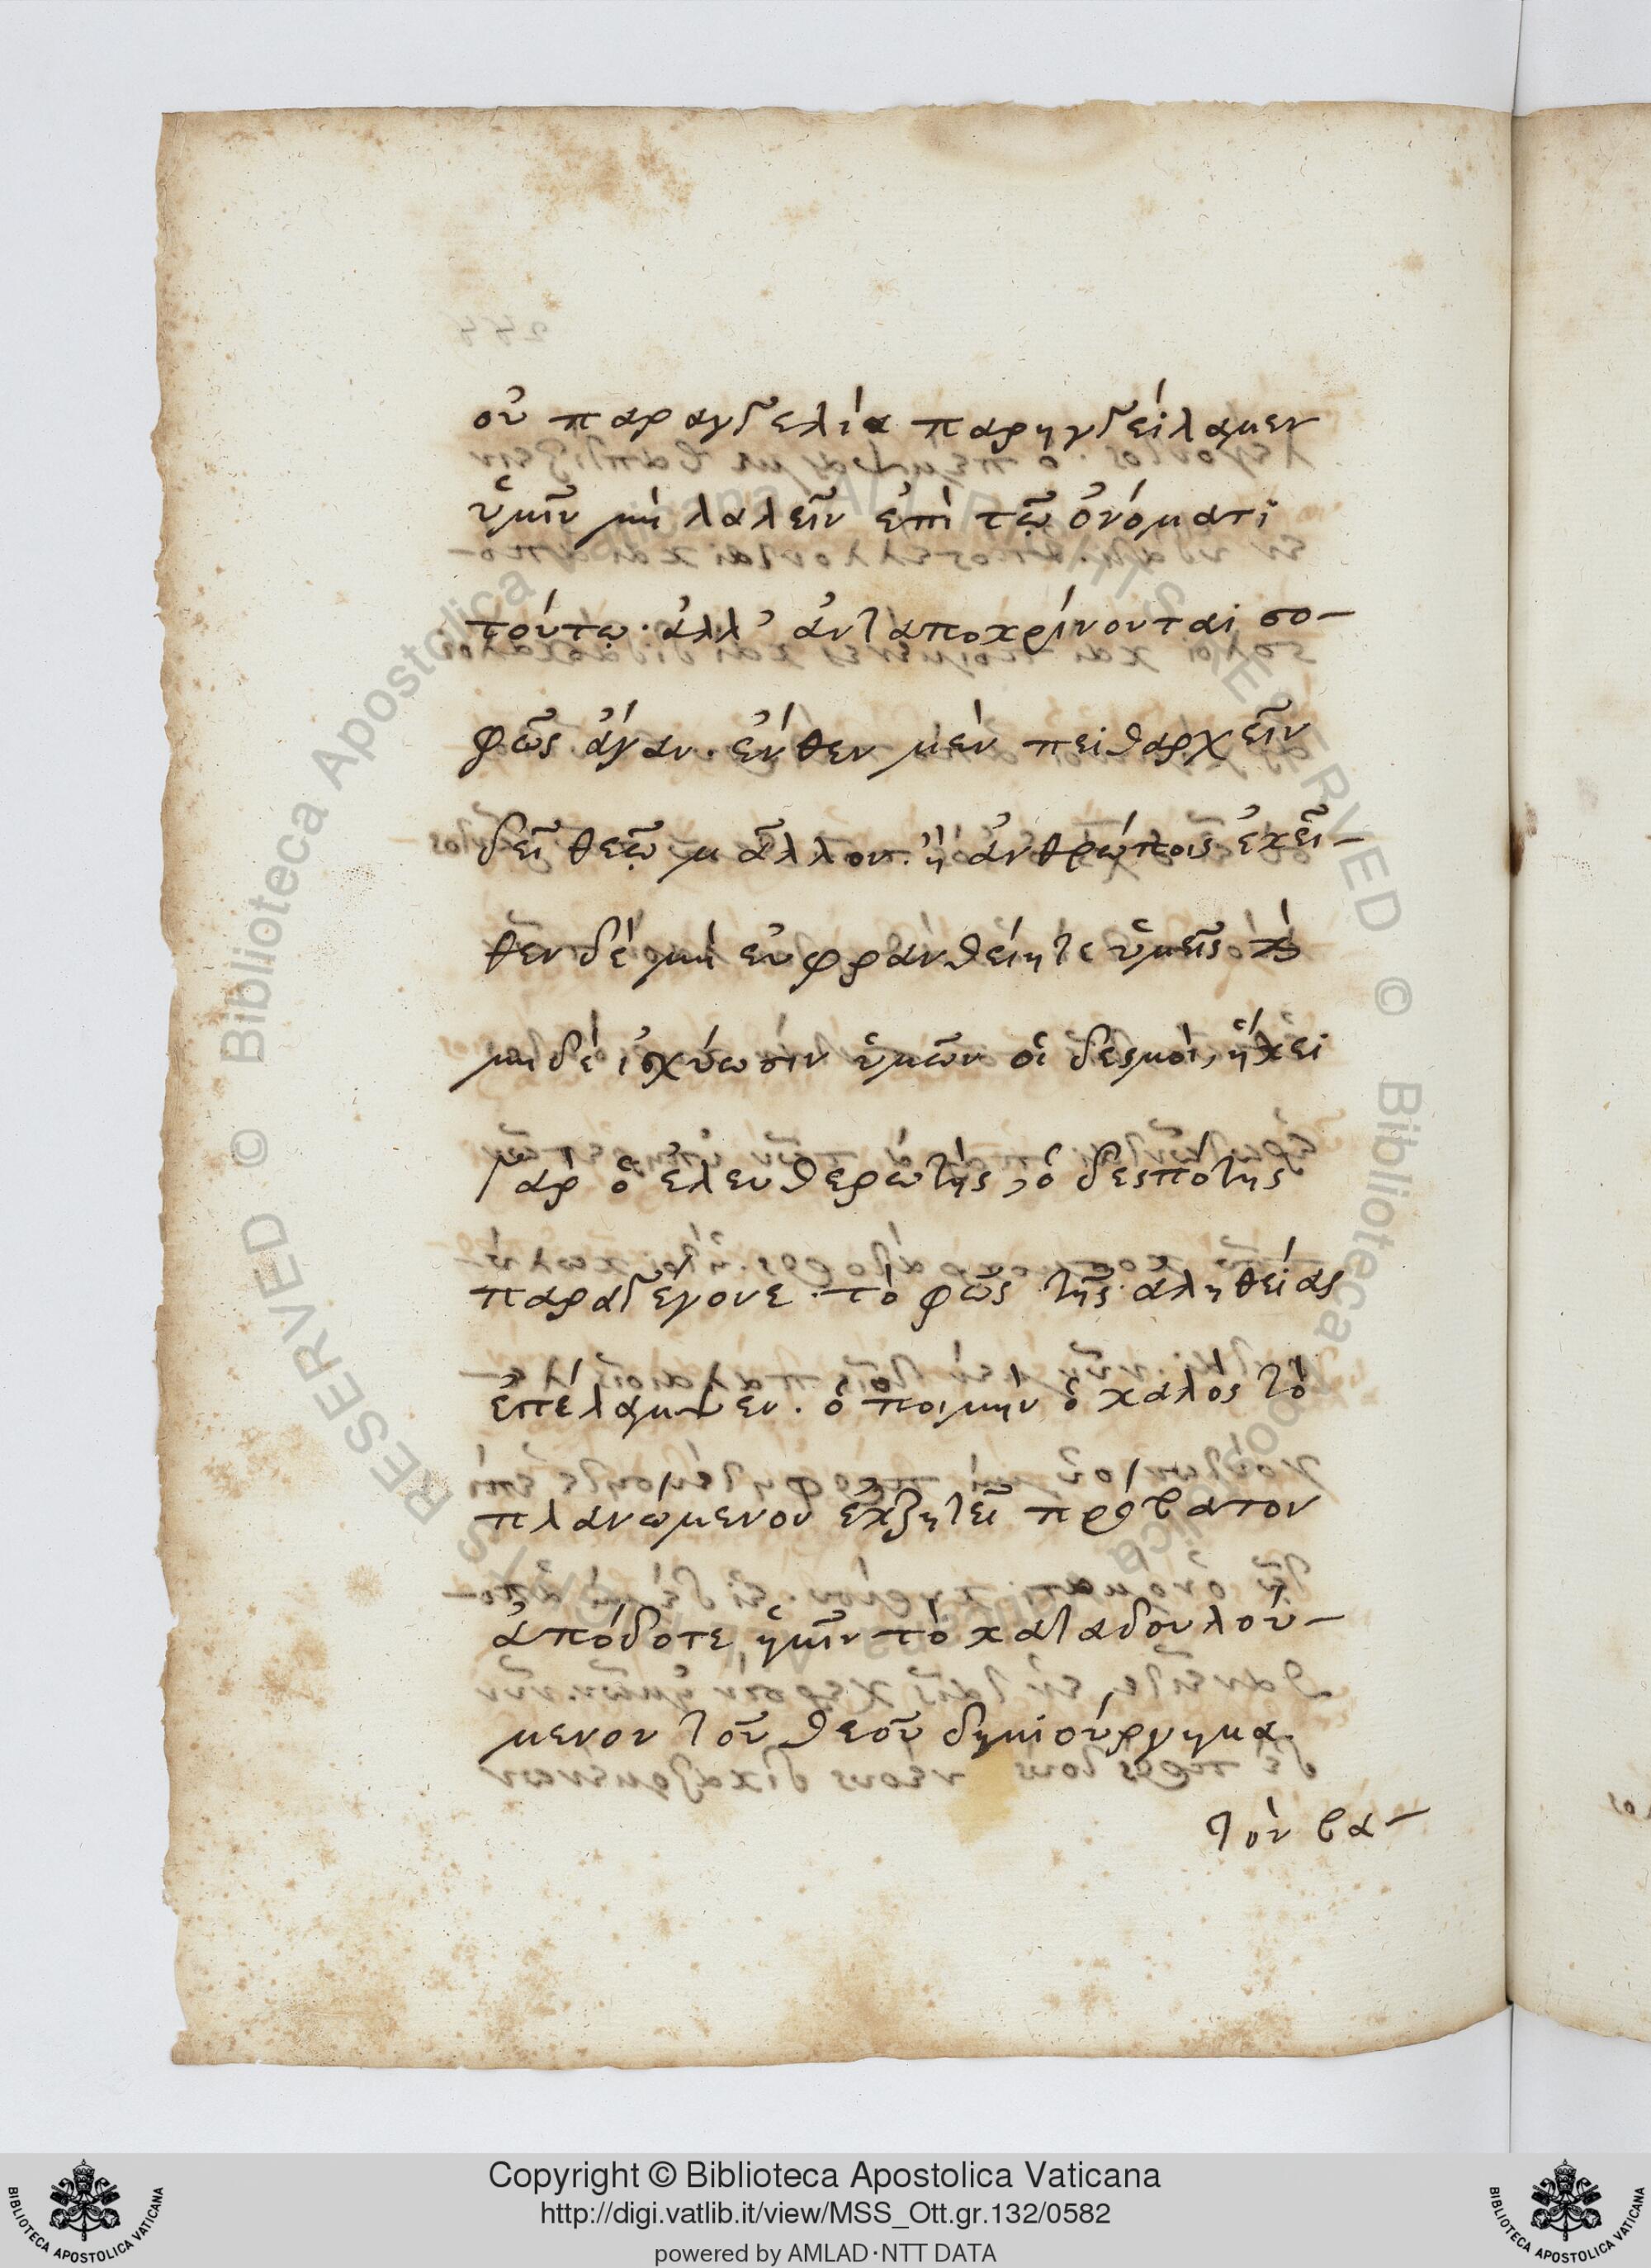 οὐ παραγγελία παρηγγείλαμεν
ὑμῖν μὴ λαλεῖν ἐπὶ τῷ ὀνόματι
τούτῳ· ἀλλ' ἀνταποκρίνονται σο-
φῶς ἄγαν. ἔνθεν μὲν πειθαρχεῖν
δεῖ θεῷ μᾶλλον. ἢ ἀνθρώποις ἐκεῖ-
θεν δὲ μὴ εὐφρανθείητε ὑμεῖς
μηδὲ ἰσχύωσιν ὑμῶν οἱ δεσμοὶ, ἥκει
γὰρ ὁ ἐλευθερωτὴς, ὁ δεσπότης
παραγέγονε. τὸ φῶς τῆς ἀληθείας
ἐπέλαμψεν. ὁ ποιμὴν ὁ καλὸς τὸ
πλανώμενον ἐκζητεῖ πρόβατον
ἀπόδοτε ἡμῖν τὸ καταδουλού-
μενον τοῦ θεοῦ δημιούργημα.
τὸν βα-
Copyright © Biblioteca Apostolica Vaticana
http://digi.vatlib.it/view/MSS_Ott.gr.132/0582
powered by AMLAD·NTT DATA
BIBLIOTECA APOSTOLICA VATICANA
BIBLIOTECA APOSTOLICA VATICANA